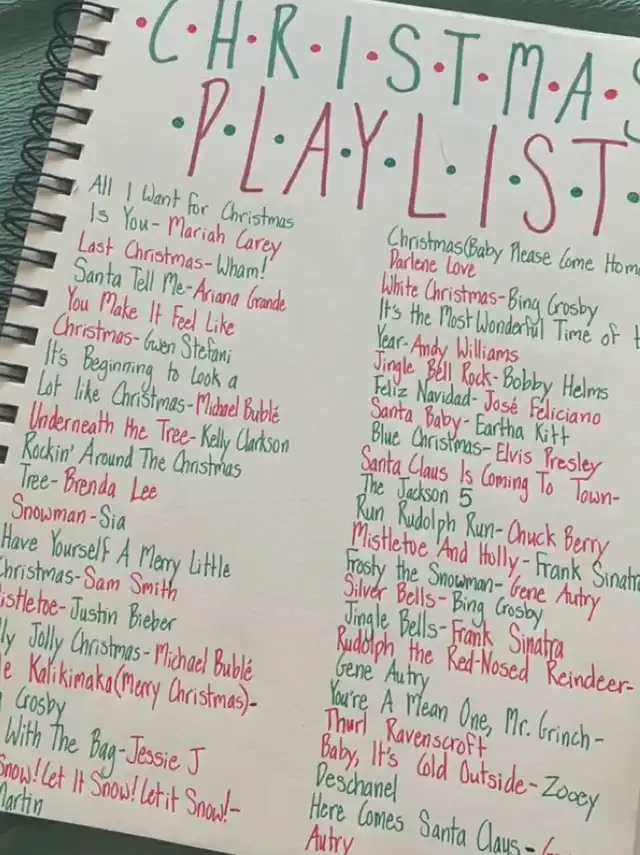 CHRISTMAS
PLAYLIST
All I Want for Christmas
Is You- Mariah Carey
Last Christmas-Wham!
Santa Tell Me-Ariana Grande
You Make It Feel Like
Christmas-Gwen Stefani
It's Beginning to Look a
Lot like Christmas-Michael Bublé
Underneath the Tree-Kelly Clarkson
Rockin' Around The Christmas
Tree-Brenda Lee
Snowman-Sia
Have Yourself A Merry Little
Christmas-Sam Smith
istletoe-Justin Bieber
lly Jolly Christmas-Michael Bublé
e Kalikimaka(Merry Christmas)-
Crosby
With The Bag-Jessie J
Snow!Let It Snow!Let it Snow!-
Martin
Christmas(Baby Please Come Home
Darlene Love
White Christmas-Bing Crosby
It's the Most Wonderful Time of t
Year-Andy Williams
Jingle Bell Rock-Bobby Helms
Feliz Navidad-José Feliciano
Santa Baby-Eartha Kitt
Blue Christmas-Elvis Presley
Santa Claus Is Coming To Town-
The Jackson 5
Run Rudolph Run-Chuck Berry
Mistletoe And Holly-Frank Sinatra
Frosty the Snowman-Gene Autry
Silver Bells-Bing Crosby
Jingle Bells-Frank Sinatra
Rudolph the Red-Nosed Reindeer-
Gene Autry
You're A Mean One, Mr. Grinch-
Thurl Ravenscroft
Baby, It's Cold Outside-Zooey
Deschanel
Here Comes Santa Claus-
Autry